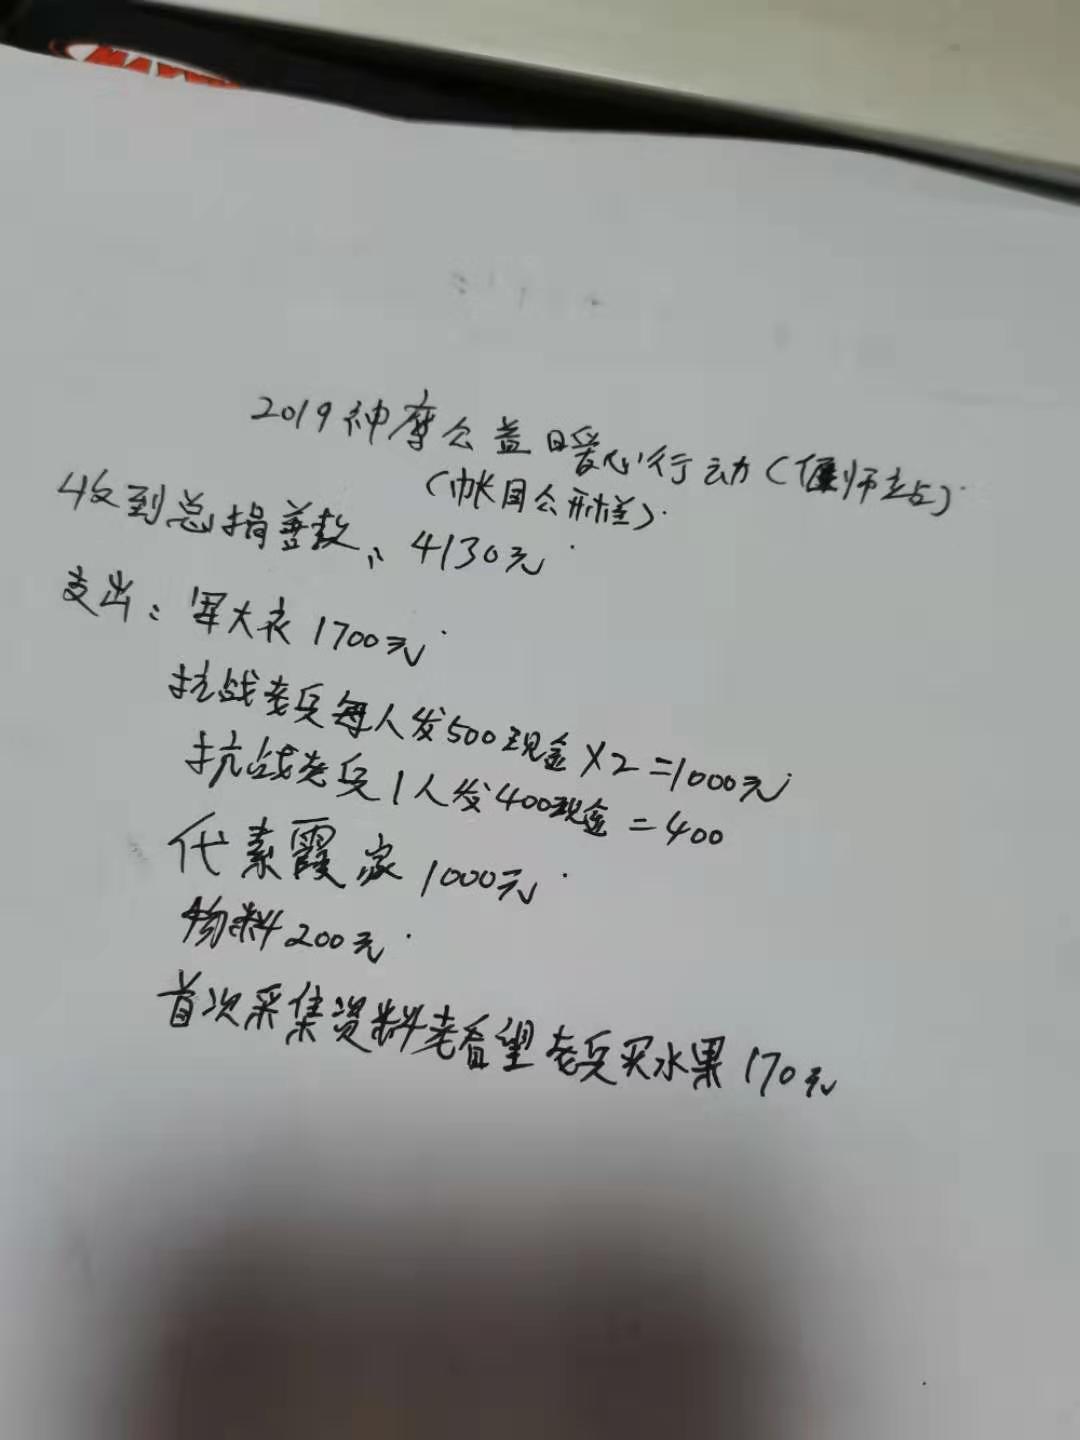 2019神摩公益日爱心行动(偃师站)
(帐目公示栏)
收到总捐善款:4130元
支出:军大衣1700元
抗战老兵每人发500现金×2=1000元
抗战老兵1人发400现金=400
代素霞家1000元
物料200元
首次采集资料老看望老兵买水果170元